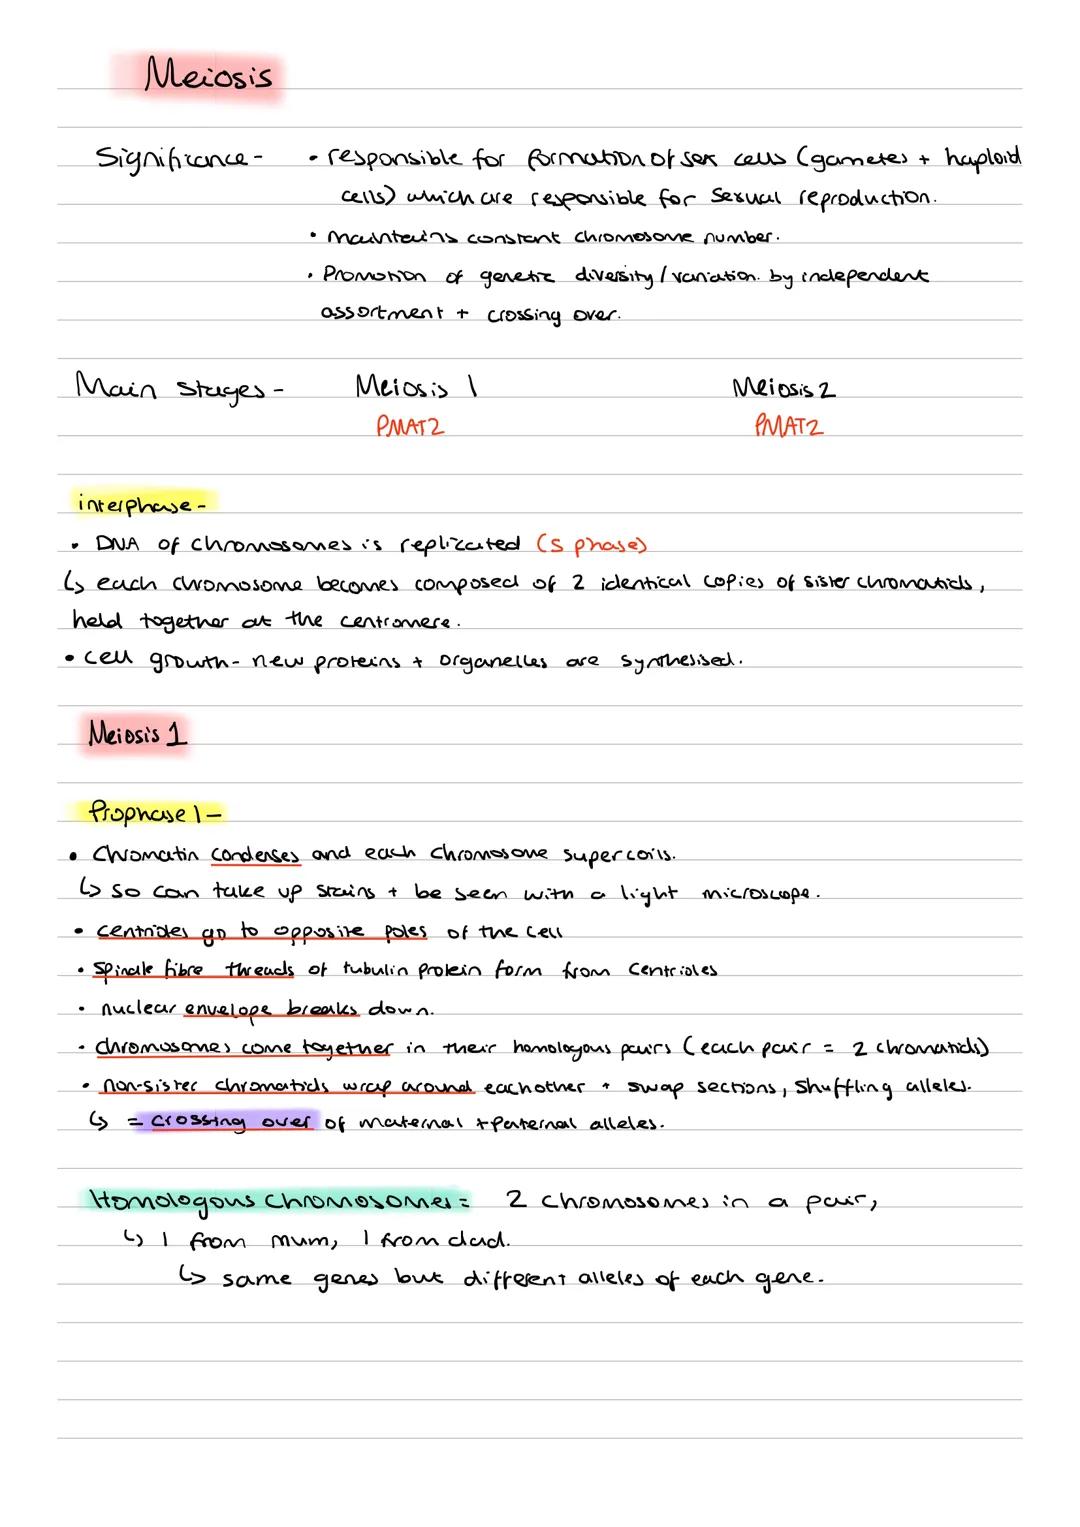 Meiosis
Significance - • responsible for formation of sex cells (gametes + haploid
cells) which are responsible for sexual reproduction.
• maintains constant chromosome number.
• Promotion of genetic diversity / variation. by independent
assortment + crossing over.
Main stages - Meiosis 1 Meiosis 2
PMAT2 PMAT2
interphase -
• DNA of chromosomes is replicated (S phase)
↳ each chromosome becomes composed of 2 identical copies of sister chromatids,
held together at the centromere.
• cell growth - new proteins + organelles are synthesised.
Meiosis 1
Prophase 1 -
• Chromatin condenses and each chromosome supercoils.
↳ so can take up stains + be seen with a light microscope.
• centrioles go to opposite poles of the cell
• spindle fibre threads of tubulin protein form from centrioles
• nuclear envelope breaks down.
• chromosomes come together in their homologous pairs (each pair = 2 chromatids)
• non-sister chromatids wrap around eachother + swap sections, shuffling alleles.
↳ = crossing over of maternal + paternal alleles.
Homologous Chromosomes = 2 chromosomes in a pair,
↳ 1 from mum, 1 from dad.
↳ same genes but different alleles of each gene.